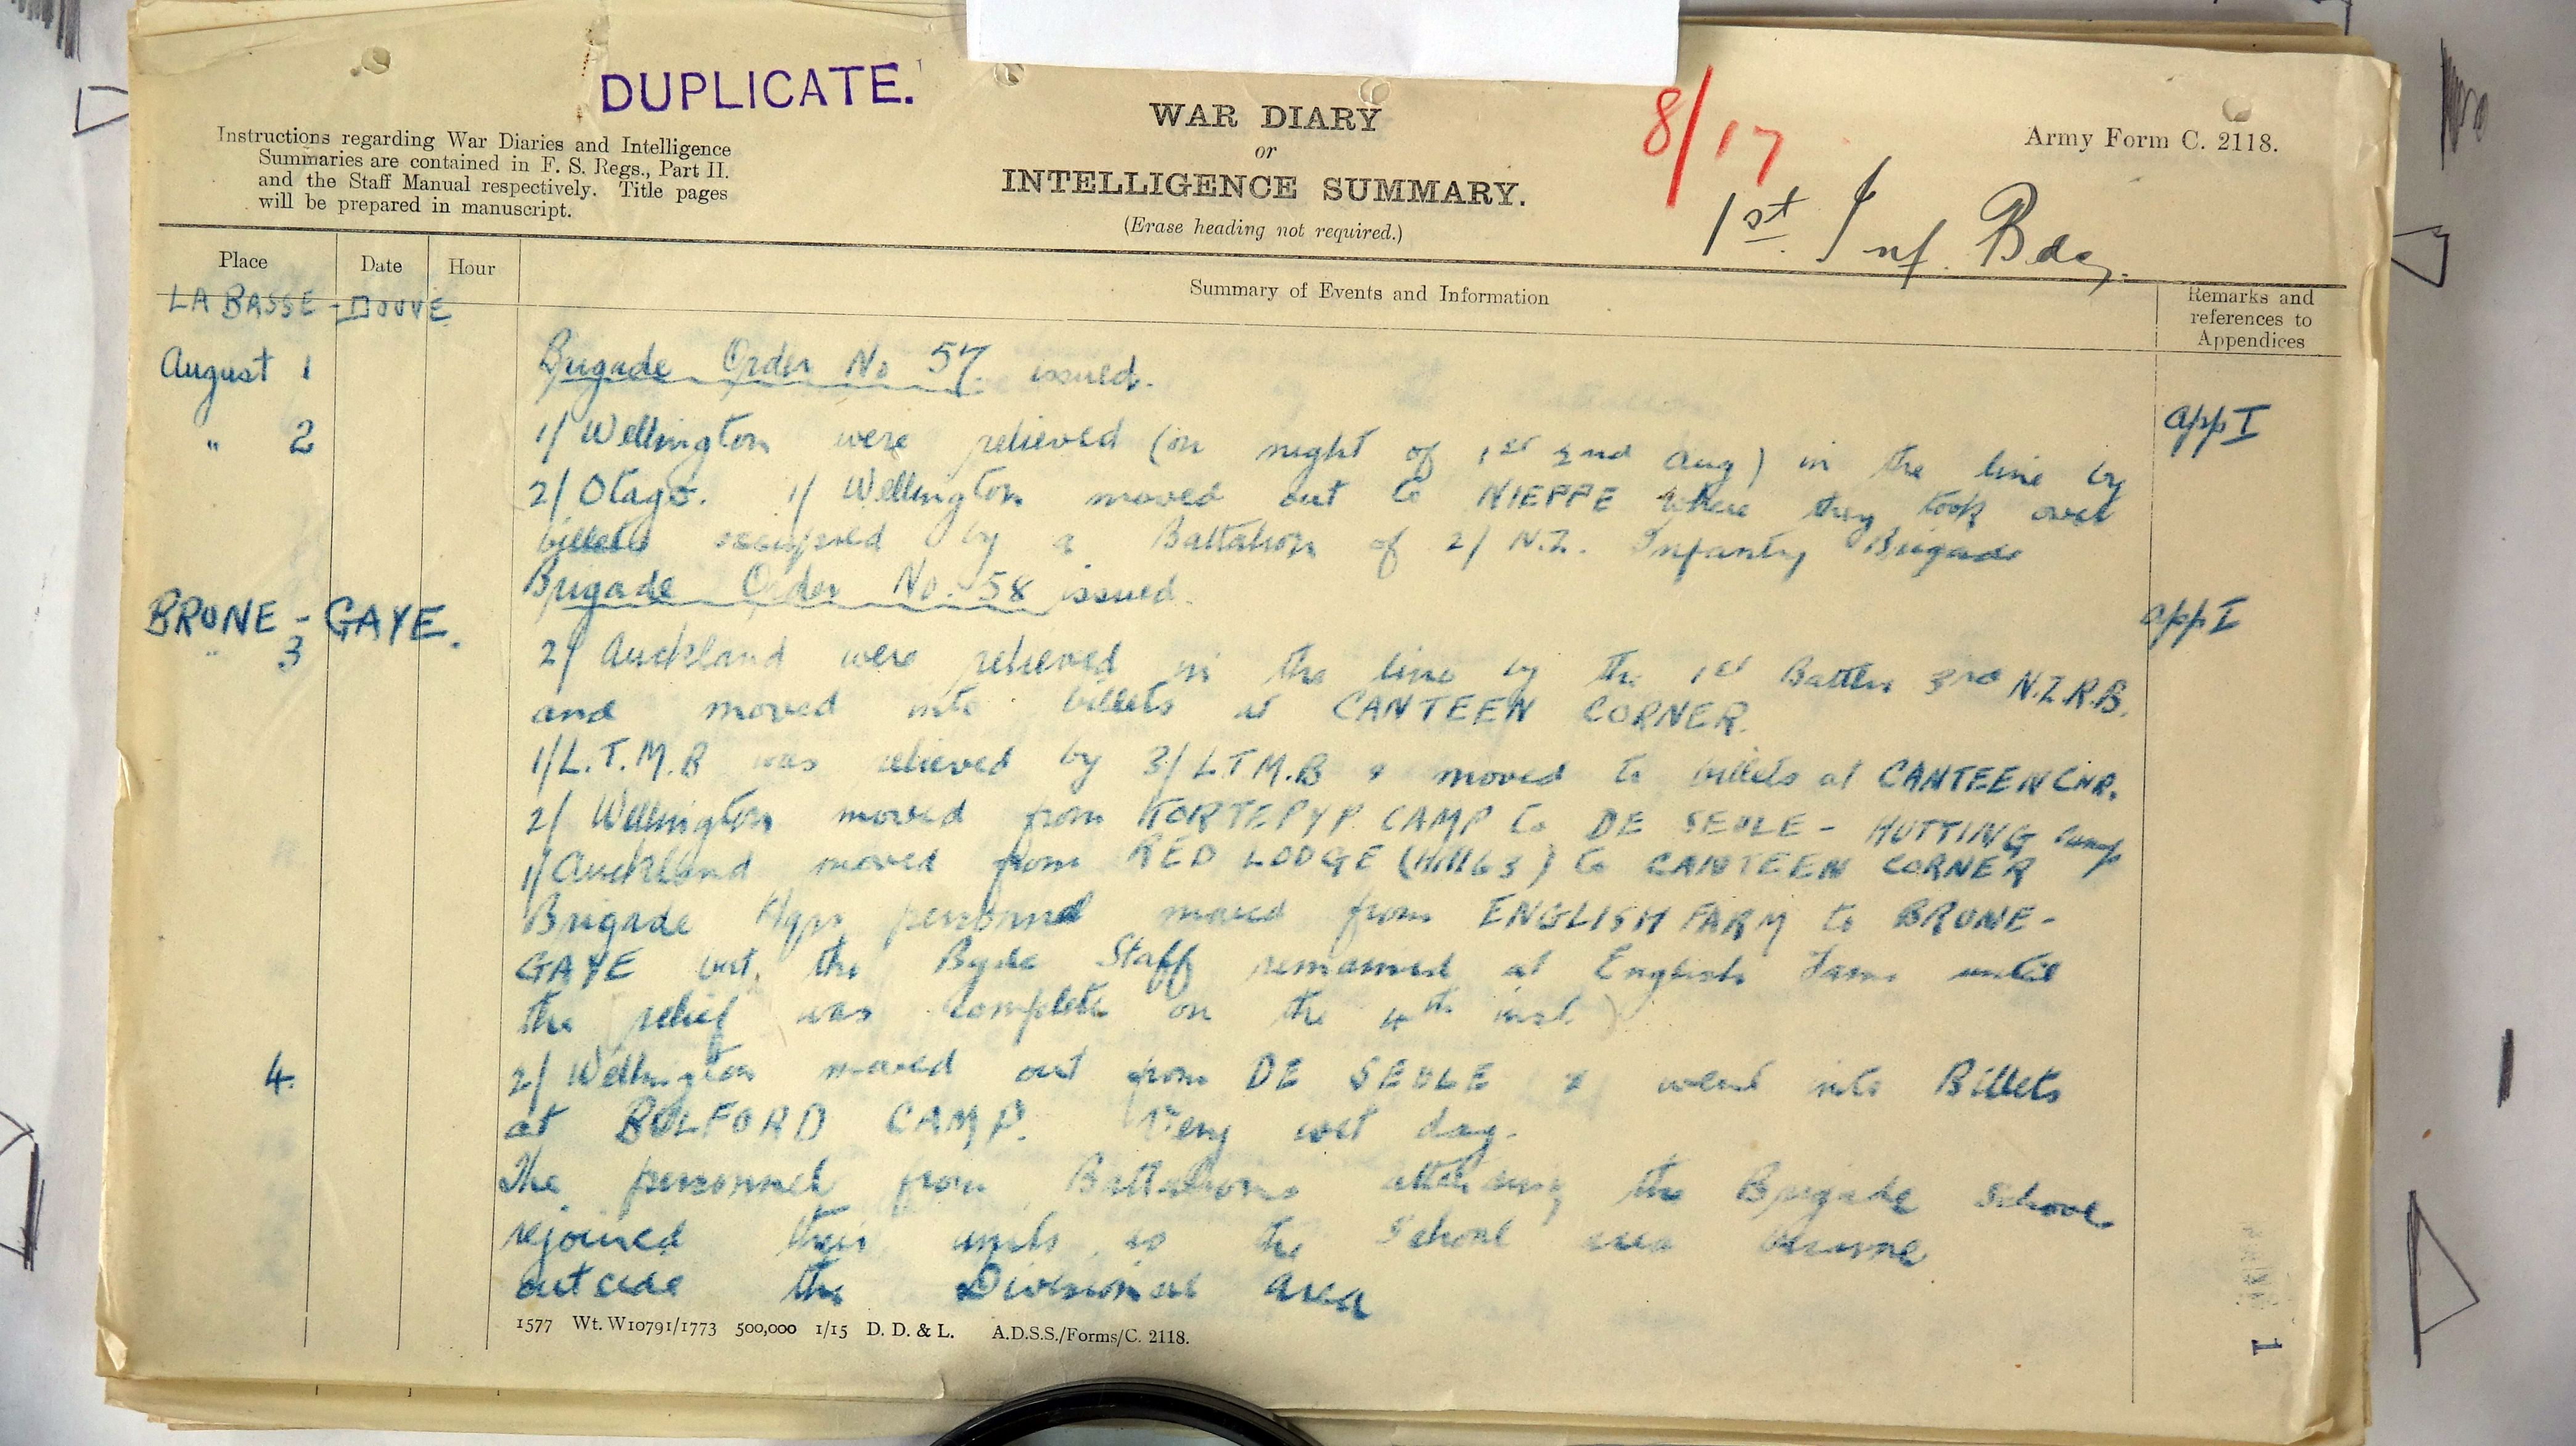 DUPLICATE.
Instructions regarding War Diaries and Intelligence
Summaries are contained in F. S. Regs., Part II.
and the Staff Manual respectively. Title pages
will be prepared in manuscript.
WAR DIARY
or
INTELLIGENCE SUMMARY.
(Erase heading not required.)
8/17
Army Form C. 2118.
1st. Inf. Bde.
Place Date Hour
Summary of Events and Information
Remarks and
references to
Appendices
LA BASSE - DOUVE
August 1 Brigade Order No 57 issued.
app I
" 2 1/ Wellington were relieved (on night of 1st 2nd Aug) in the line by
2/ Otago. 1/ Wellington moved out to NIEPPE where they took over
billets occupied by a Battalion of 2/ N.Z. Infantry Brigade
Brigade Order No. 58 issued.
app I
BRUNE - GAYE.
" 3 2/ Auckland were relieved in the line by the 1st Battln 3rd N.Z.R.B.
and moved into billets at CANTEEN CORNER.
1/L.T.M.B was relieved by 3/ L.T.M.B & moved to billets at CANTEEN CNR.
2/ Wellington moved from KORTEPYP CAMP to DE SEULE - HUTTING Camp
1/ Auckland moved from RED LODGE to CANTEEN CORNER
Brigade Hqrs personnel moved from ENGLISH FARM to BRUNE-
GAYE but the Bgde Staff remained at English Farm until
the relief was complete on the 4th inst.)
4. 2/ Wellington moved out from DE SEULE & went into Billets
at BULFORD CAMP. Very wet day.
The personnel from Battalions attending the Brigade School
rejoined their units as the School area became
outside the Divisional area
1577 Wt. W10791/1773 500,000 1/15 D. D. & L. A.D.S.S./Forms/C. 2118.
1